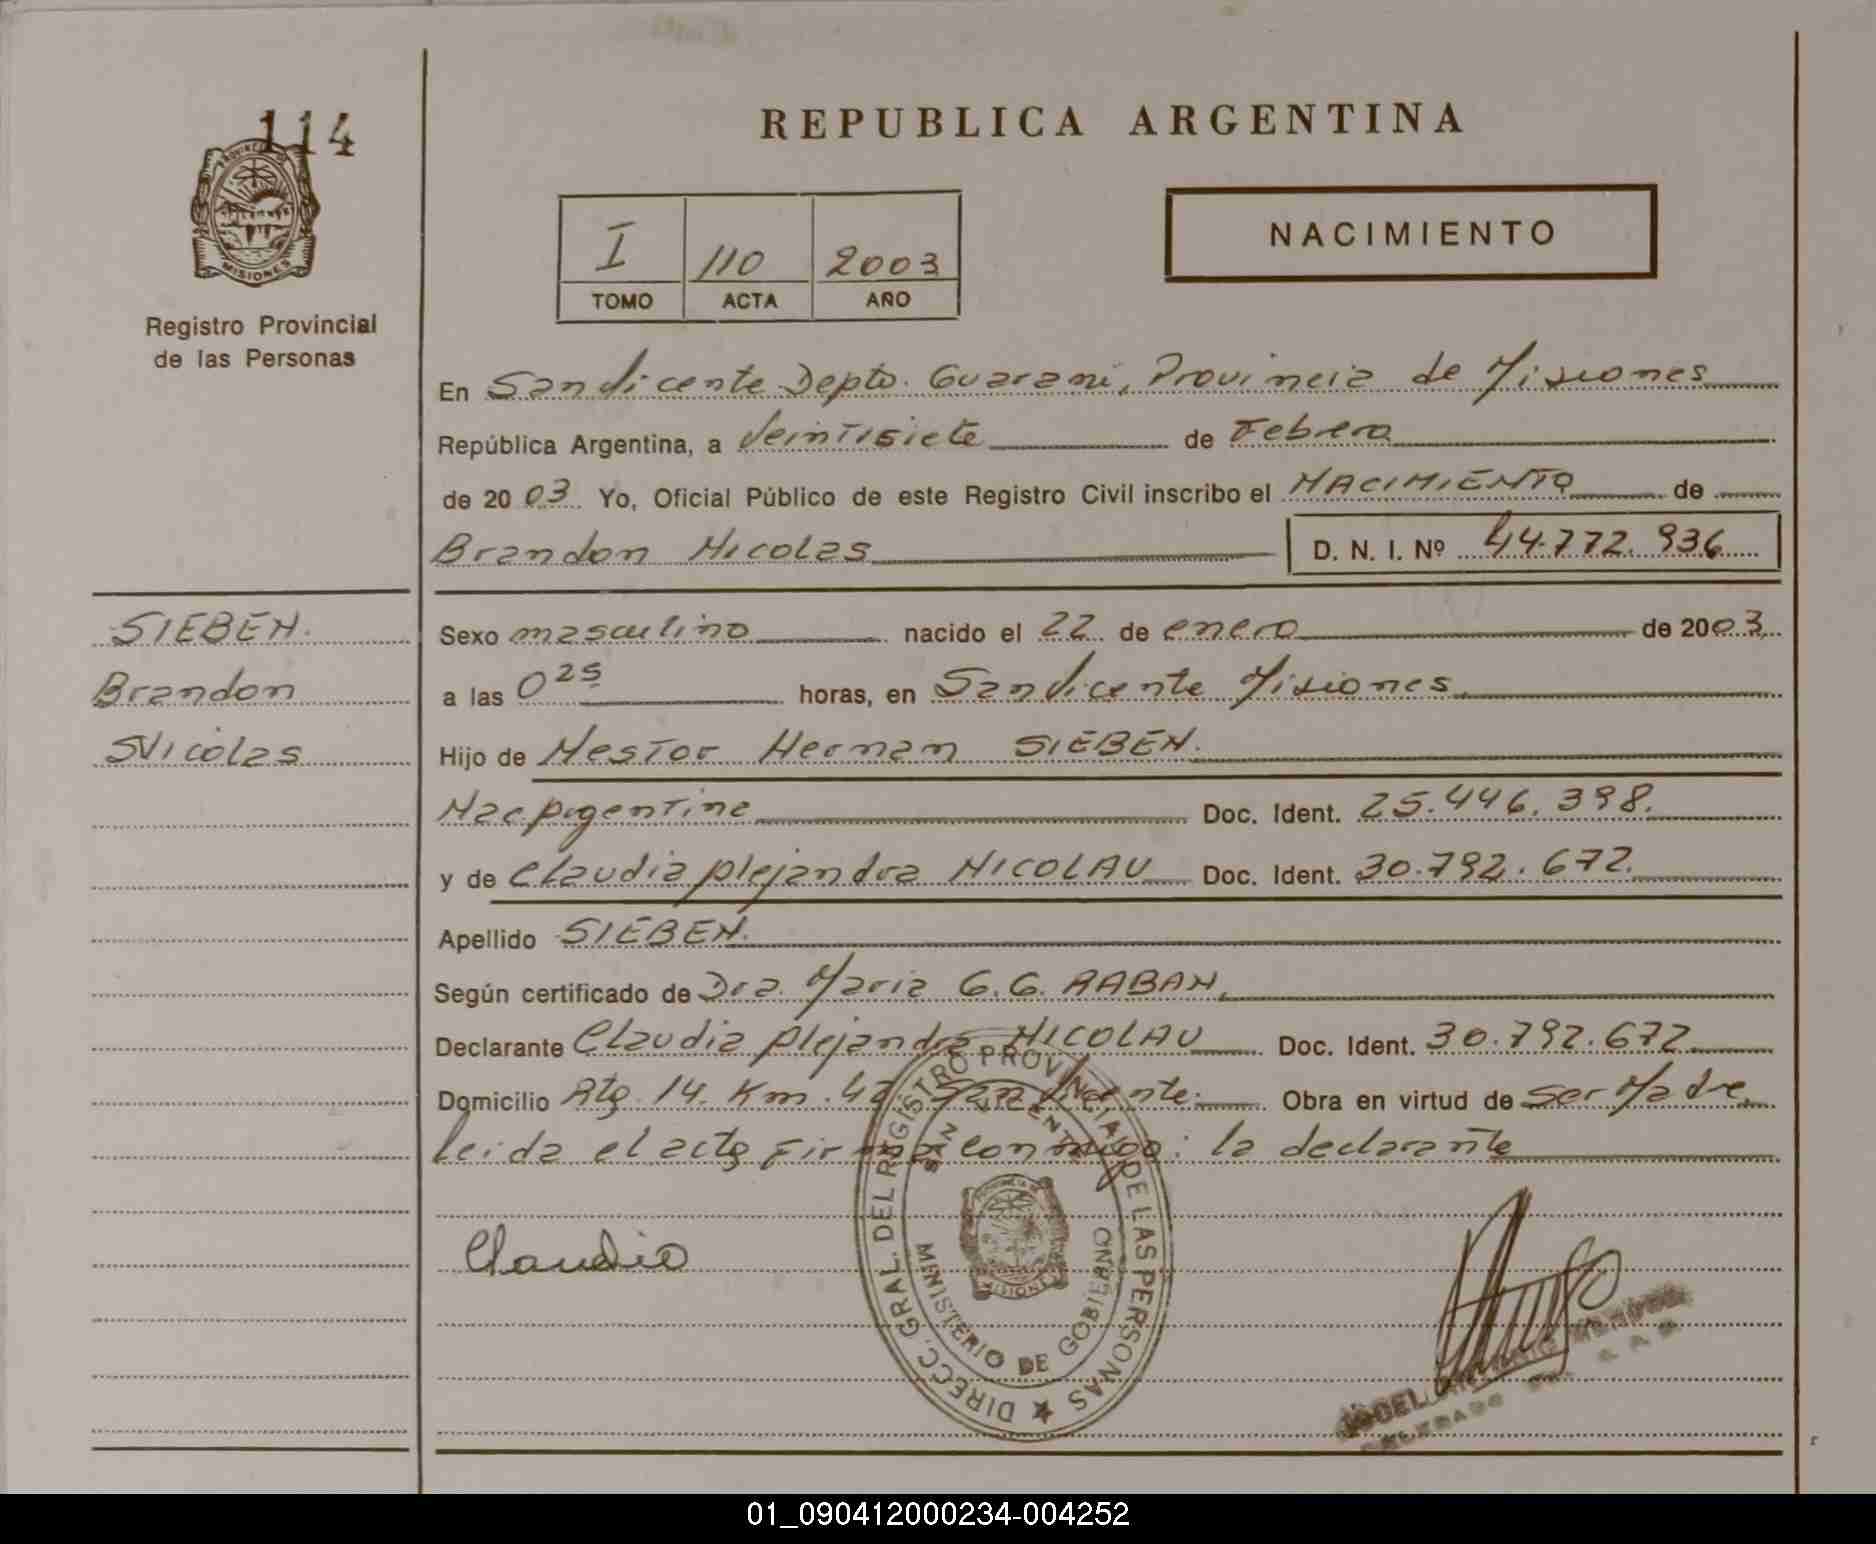 114
PROVINCIA DE
MISIONES
Registro Provincial
de las Personas
SIEBEN.
Brandon
Nicolas
REPUBLICA ARGENTINA
I 110 2003
TOMO ACTA AÑO
NACIMIENTO
En San Vicente Depto. Guarani, Provincia de Misiones
República Argentina, a Veintisiete de Febrero
de 2003. Yo, Oficial Público de este Registro Civil inscribo el NACIMIENTO de
Brandon Nicolas D. N. I. Nº 44.772.936
Sexo masculino nacido el 22 de enero de 2003
a las 0 25 horas, en San Vicente Misiones
Hijo de Nestor Hernan SIEBEN.
Nac Argentina Doc. Ident. 25.446.398.
y de Claudia Alejandra NICOLAU Doc. Ident. 30.792.672.
Apellido SIEBEN.
Según certificado de Dra. Maria G. G. RABAN.
Declarante Claudia Alejandra NICOLAU Doc. Ident. 30.792.672
Domicilio Rta. 14. Km. San Vicente. Obra en virtud de ser Madre
leida el acta Firma Conmigo: la declarante
Claudia
DIRECC. GRAL. DEL REGISTRO PROVINCIAL DE LAS PERSONAS
SAN VICENTE
MISIONES
MINISTERIO DE GOBIERNO
01_090412000234-004252